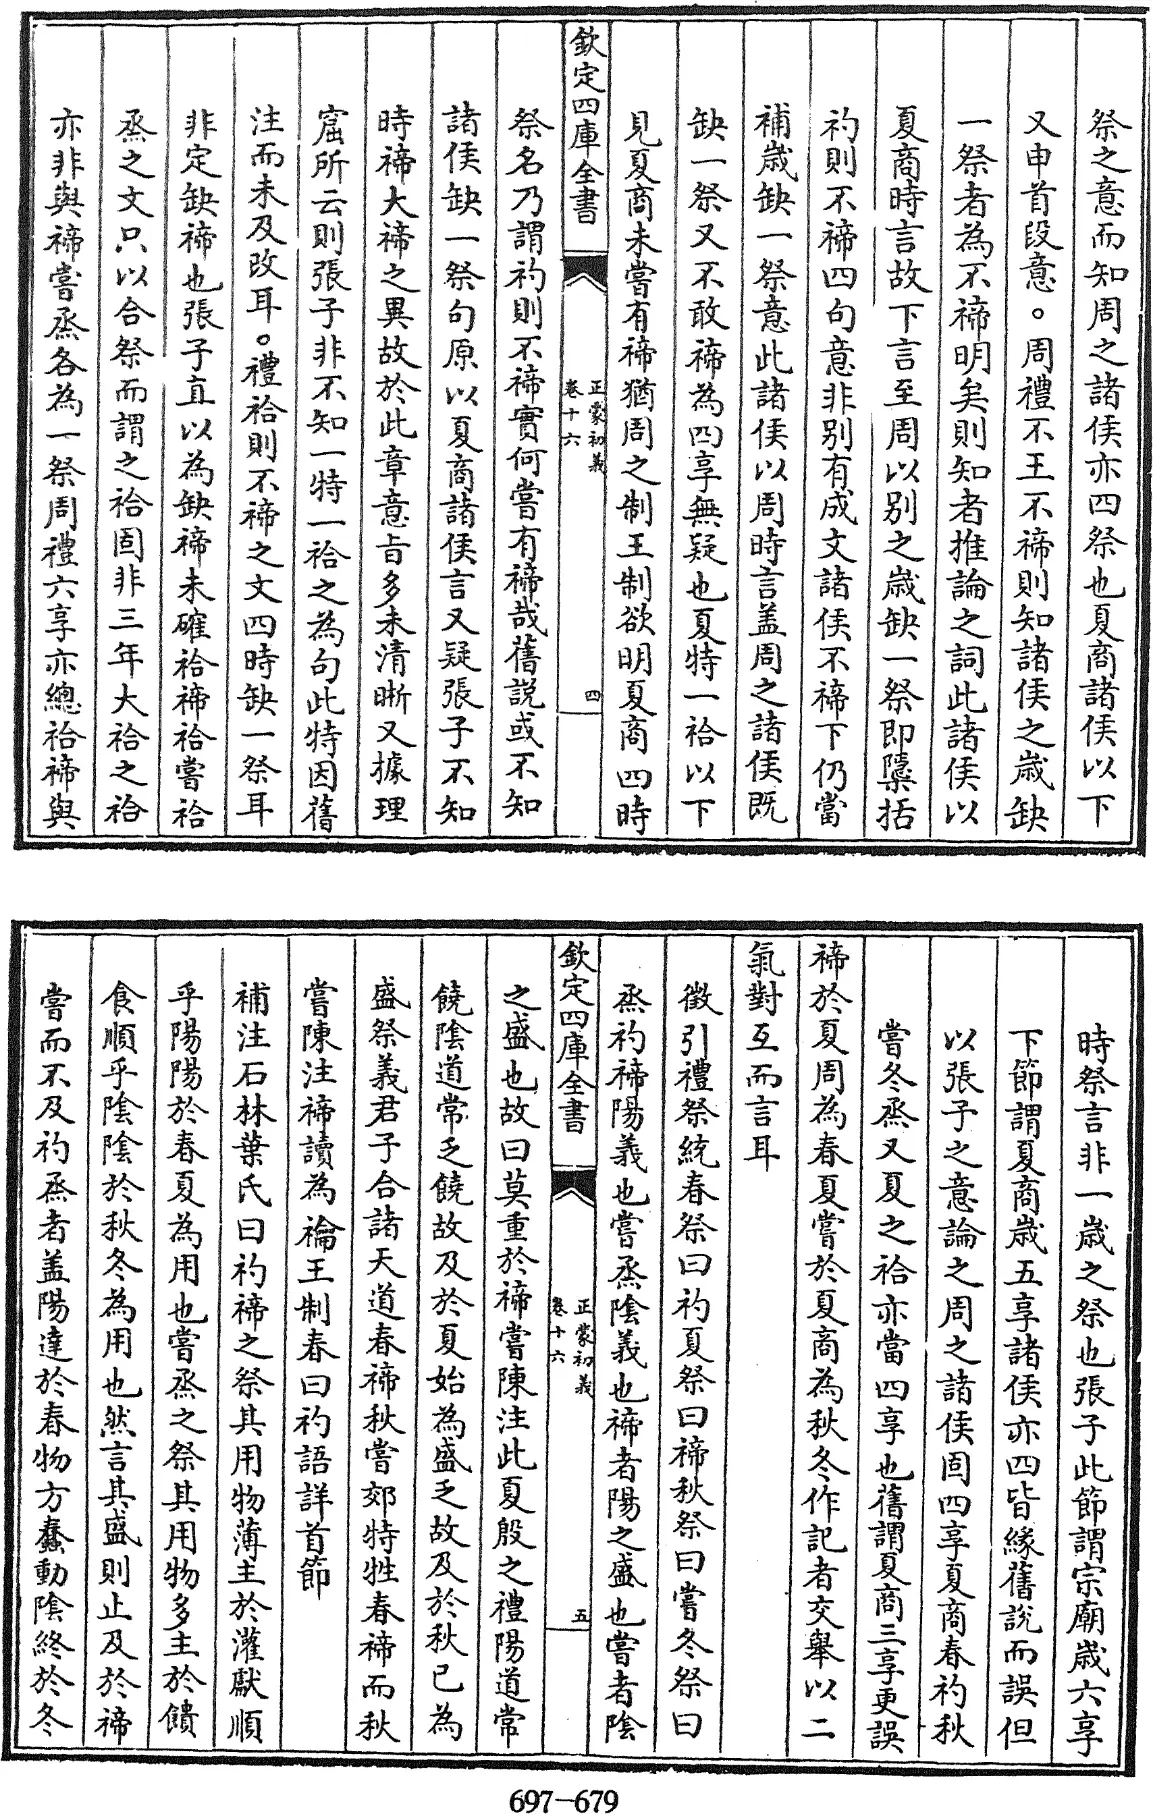 祭之意而知周之諸侯亦四祭也夏商諸侯以下
又申首段意。周禮不王不禘則知諸侯之歲缺
一祭者為不禘明矣則知者推論之詞此諸侯以
夏商時言故下言至周以别之歲缺一祭即隱括
礿則不禘四句意非别有成文諸侯不禘下仍當
補歲缺一祭意此諸侯以周時言盖周之諸侯既
缺一祭又不敢禘為四享無疑也夏特一祫以下
見夏商未嘗有禘猶周之制王制欲明夏商四時
欽定四庫全書
正蒙初義
卷十六
四
祭名乃謂礿則不禘實何嘗有禘哉舊説或不知
諸侯缺一祭句原以夏商諸侯言又疑張子不知
時禘大禘之異故於此章意㫖多未清晰又據理
窟所云則張子非不知一特一祫之為句此特因舊
注而未及改耳。禮祫則不禘之文四時缺一祭耳
非定缺禘也張子直以為缺禘未確祫禘祫嘗祫
烝之文只以合祭而謂之祫固非三年大祫之祫
亦非與禘嘗烝各為一祭周禮六享亦總祫禘與
時祭言非一歲之祭也張子此節謂宗廟歲六享
下節謂夏商歲五享諸侯亦四皆緣舊説而誤但
以張子之意論之周之諸侯固四享夏商春礿秋
嘗冬烝又夏之祫亦當四享也舊謂夏商三享更誤
禘於夏周為春夏嘗於夏商為秋冬作記者交舉以二
氣對互而言耳
徵引禮祭統春祭曰礿夏祭曰禘秋祭曰嘗冬祭曰
烝礿禘陽義也嘗烝陰義也禘者陽之盛也嘗者陰
欽定四庫全書
正蒙初義
卷十六
五
之盛也故曰莫重於禘嘗陳注此夏殷之禮陽道常
饒陰道常乏饒故及於夏始為盛乏故及於秋已為
盛祭義君子合諸天道春禘秋嘗郊特牲春禘而秋
嘗陳注禘讀為禴王制春曰礿語詳首節
補注石林葉氏曰礿禘之祭其用物薄主於灌獻順
乎陽陽於春夏為用也嘗烝之祭其用物多主於饋
食順乎陰陰於秋冬為用也然言其盛則止及於禘
嘗而不及礿烝者盖陽達於春物方蠢動陰終於冬
697—679